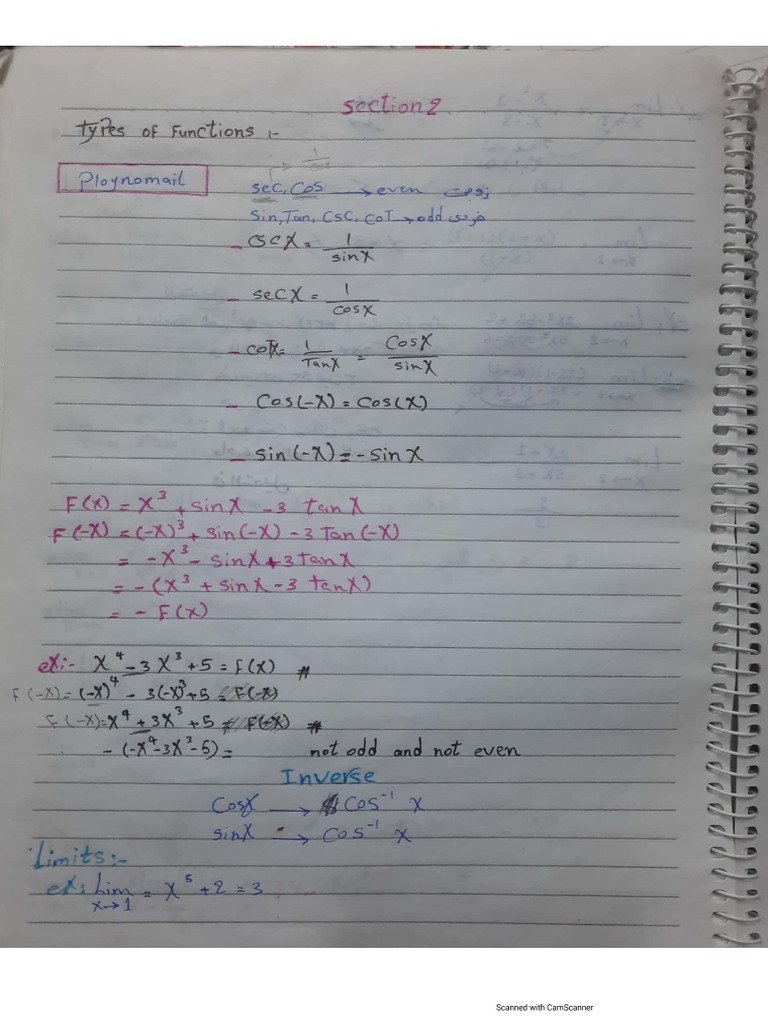 Section 2
Types of Functions :-
Ploynomail
1/cos
sec, cos → even زوجي
Sin, Tan, CSC, CoT → odd فردي
- CSC X = 1/sinX
- sec X = 1/cosX
- coTx = 1/TanX = CosX/sinX
- Cos(-X) = Cos(X)
- sin(-X) = -sinX
F(X) = X³ + sinX - 3 tanX
F(-X) = (-X)³ + sin(-X) - 3 Tan(-X)
= -X³ - sinX + 3 tanX
= -(X³ + sinX - 3 tanX)
= - F(X)
ex:- X⁴ - 3X³ + 5 = F(X) #
F(-X) = (-X)⁴ - 3(-X)³ + 5 = F(-X)
F(-X) = X⁴ + 3X³ + 5 #
-(-X⁴ - 3X³ - 5) = not odd and not even
Inverse
CosX → Cos⁻¹ X
sinX → Cos⁻¹ X
Limits:-
ex: Lim x→1 = X⁵ + 2 = 3
Scanned with CamScanner